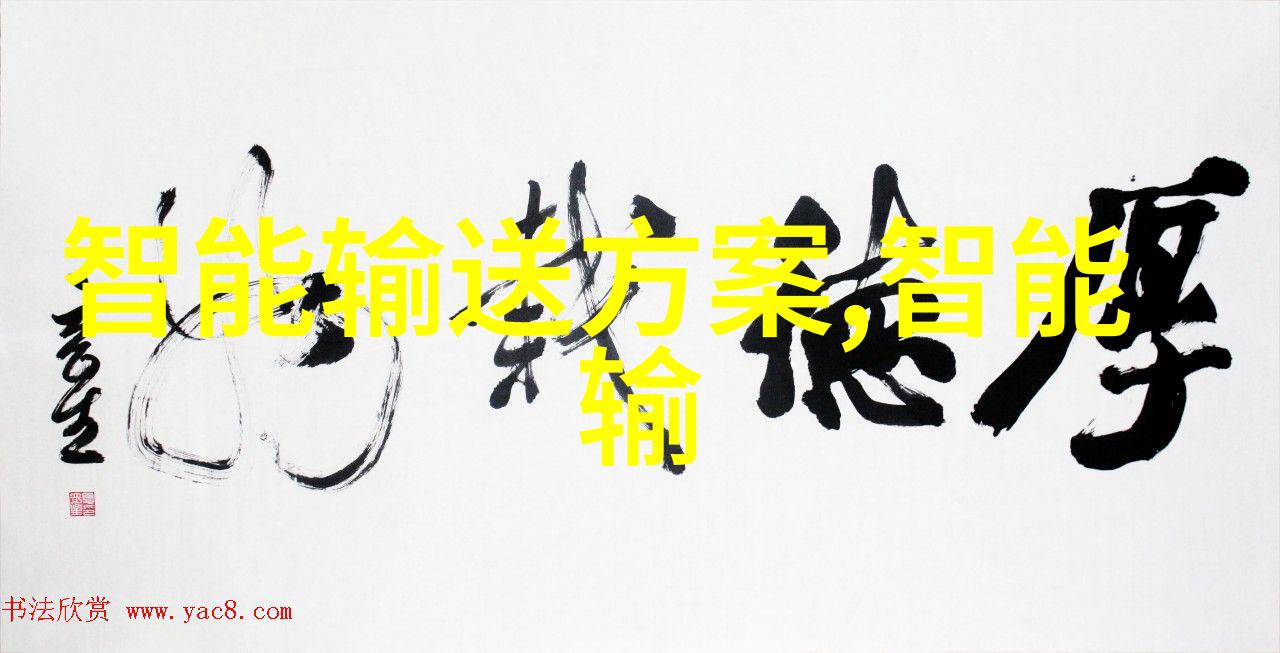 智能输送方案,智能
输
厚德载物
书法欣赏 www.yac8.com